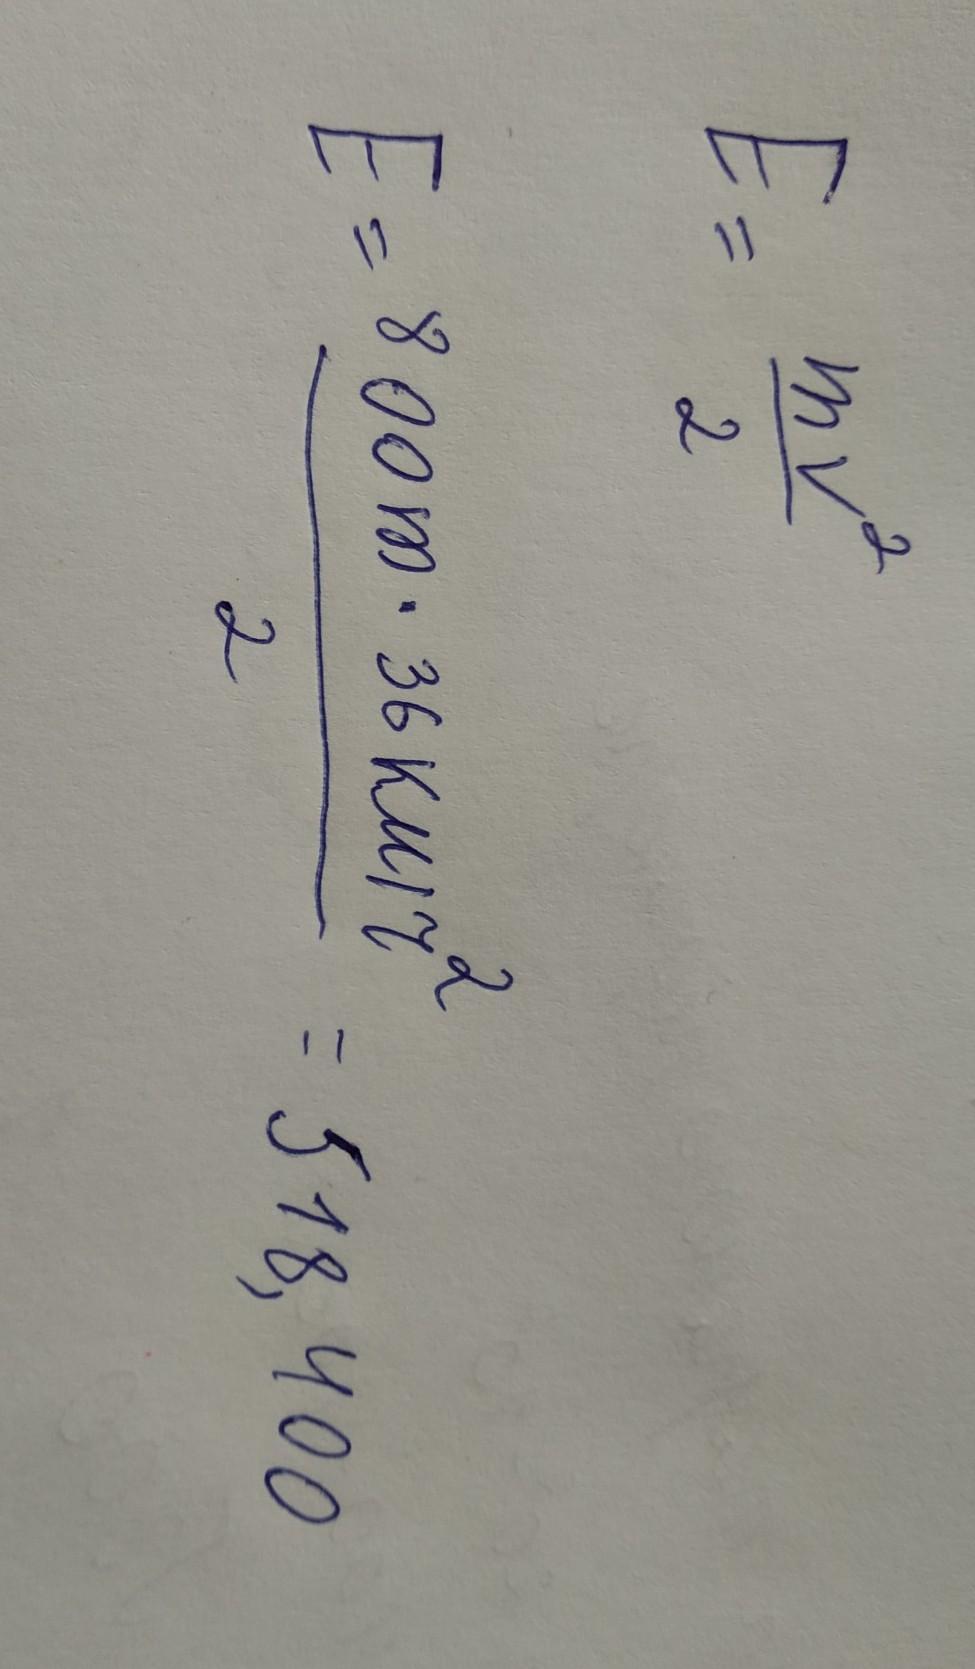 E = mv²
2
E = 800т · 36км/ч²
2
= 518,400